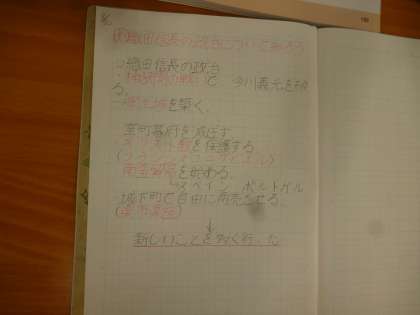 織田信長の政治について知ろう
織田信長の政治
・桶狭間の戦いで、今川義元を破
る。
・安土城を築く。
室町幕府を滅ぼす。
・キリスト教を保護する。
(フランシスコ=ザビエル)
南蛮貿易を始める。
スペイン、ポルトガル
城下町で自由に商売させる。
(楽市楽座)
↓
新しいことを